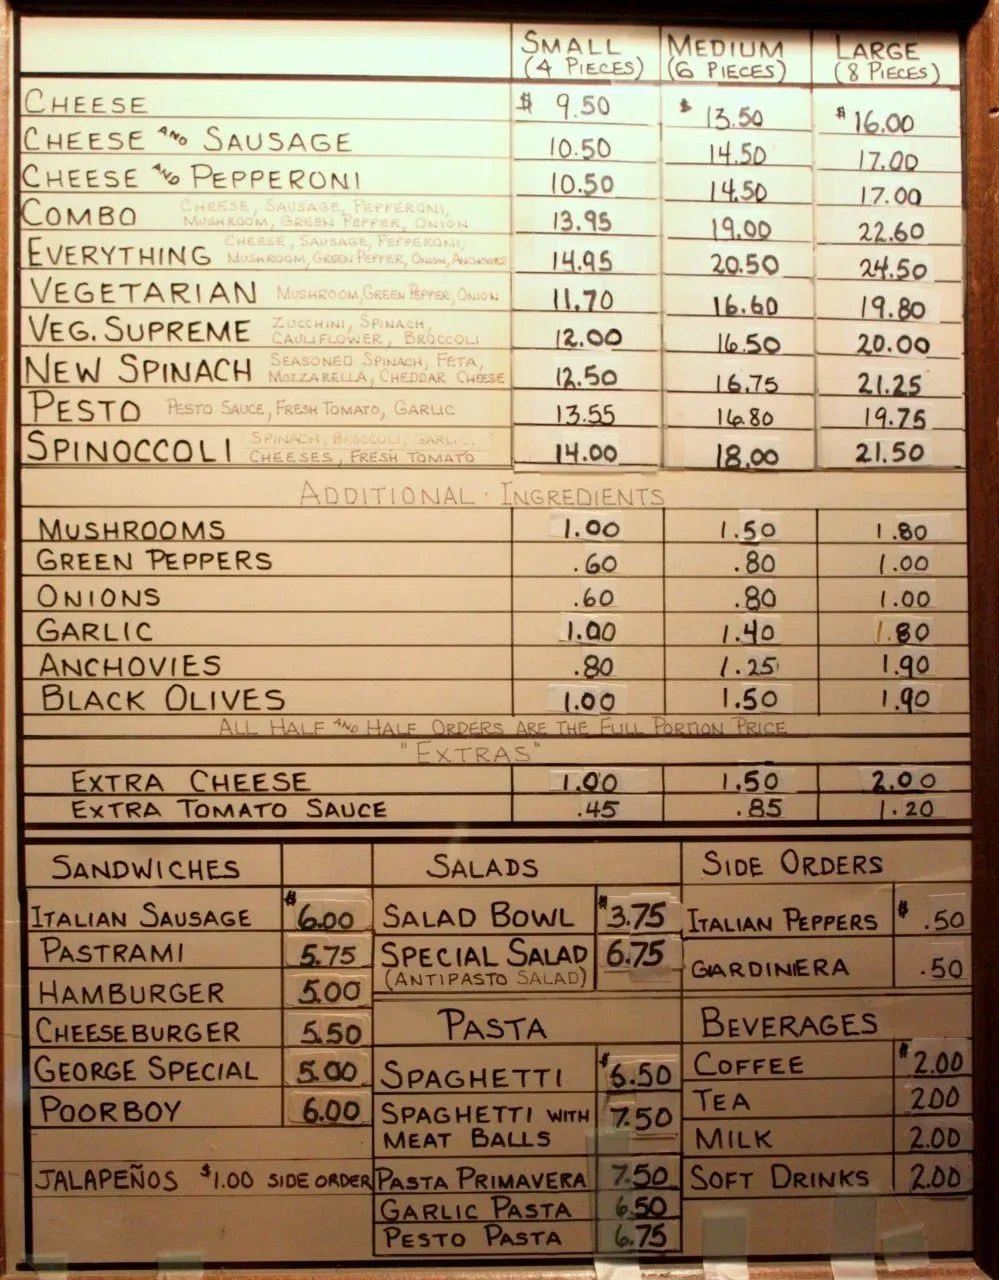 SMALL MEDIUM LARGE
(4 PIECES) (6 PIECES) (8 PIECES)
CHEESE $ 9.50 $ 13.50 $ 16.00
CHEESE AND SAUSAGE 10.50 14.50 17.00
CHEESE AND PEPPERONI 10.50 14.50 17.00
COMBO CHEESE, SAUSAGE, PEPPERONI, MUSHROOM, GREEN PEPPER, ONION 13.95 19.00 22.60
EVERYTHING CHEESE, SAUSAGE, PEPPERONI, MUSHROOM, GREEN PEPPER, ONION, ANCHOVIES 14.95 20.50 24.50
VEGETARIAN MUSHROOM, GREEN PEPPER, ONION 11.70 16.60 19.80
VEG. SUPREME ZUCCHINI, SPINACH, CAULIFLOWER, BROCCOLI 12.00 16.50 20.00
NEW SPINACH SEASONED SPINACH, FETA, MOZZARELLA, CHEDDAR CHEESE 12.50 16.75 21.25
PESTO PESTO SAUCE, FRESH TOMATO, GARLIC 13.55 16.80 19.75
SPINOCCOLI SPINACH, BROCCOLI, CHEESES, FRESH TOMATO 14.00 18.00 21.50
ADDITIONAL · INGREDIENTS
MUSHROOMS 1.00 1.50 1.80
GREEN PEPPERS .60 .80 1.00
ONIONS .60 .80 1.00
GARLIC 1.00 1.40 1.80
ANCHOVIES .80 1.25 1.90
BLACK OLIVES 1.00 1.50 1.90
ALL HALF AND HALF ORDERS ARE THE FULL PORTION PRICE
"EXTRAS"
EXTRA CHEESE 1.00 1.50 2.00
EXTRA TOMATO SAUCE .45 .85 1.20
SANDWICHES
ITALIAN SAUSAGE $6.00
PASTRAMI 5.75
HAMBURGER 5.00
CHEESEBURGER 5.50
GEORGE SPECIAL 5.00
POORBOY 6.00
JALAPEÑOS $1.00 SIDE ORDER
SALADS
SALAD BOWL $3.75
SPECIAL SALAD 6.75
(ANTIPASTO SALAD)
PASTA
SPAGHETTI $6.50
SPAGHETTI WITH 7.50
MEAT BALLS
PASTA PRIMAVERA 7.50
GARLIC PASTA 6.50
PESTO PASTA 6.75
SIDE ORDERS
ITALIAN PEPPERS $ .50
GIARDINIERA .50
BEVERAGES
COFFEE $2.00
TEA 2.00
MILK 2.00
SOFT DRINKS 2.00